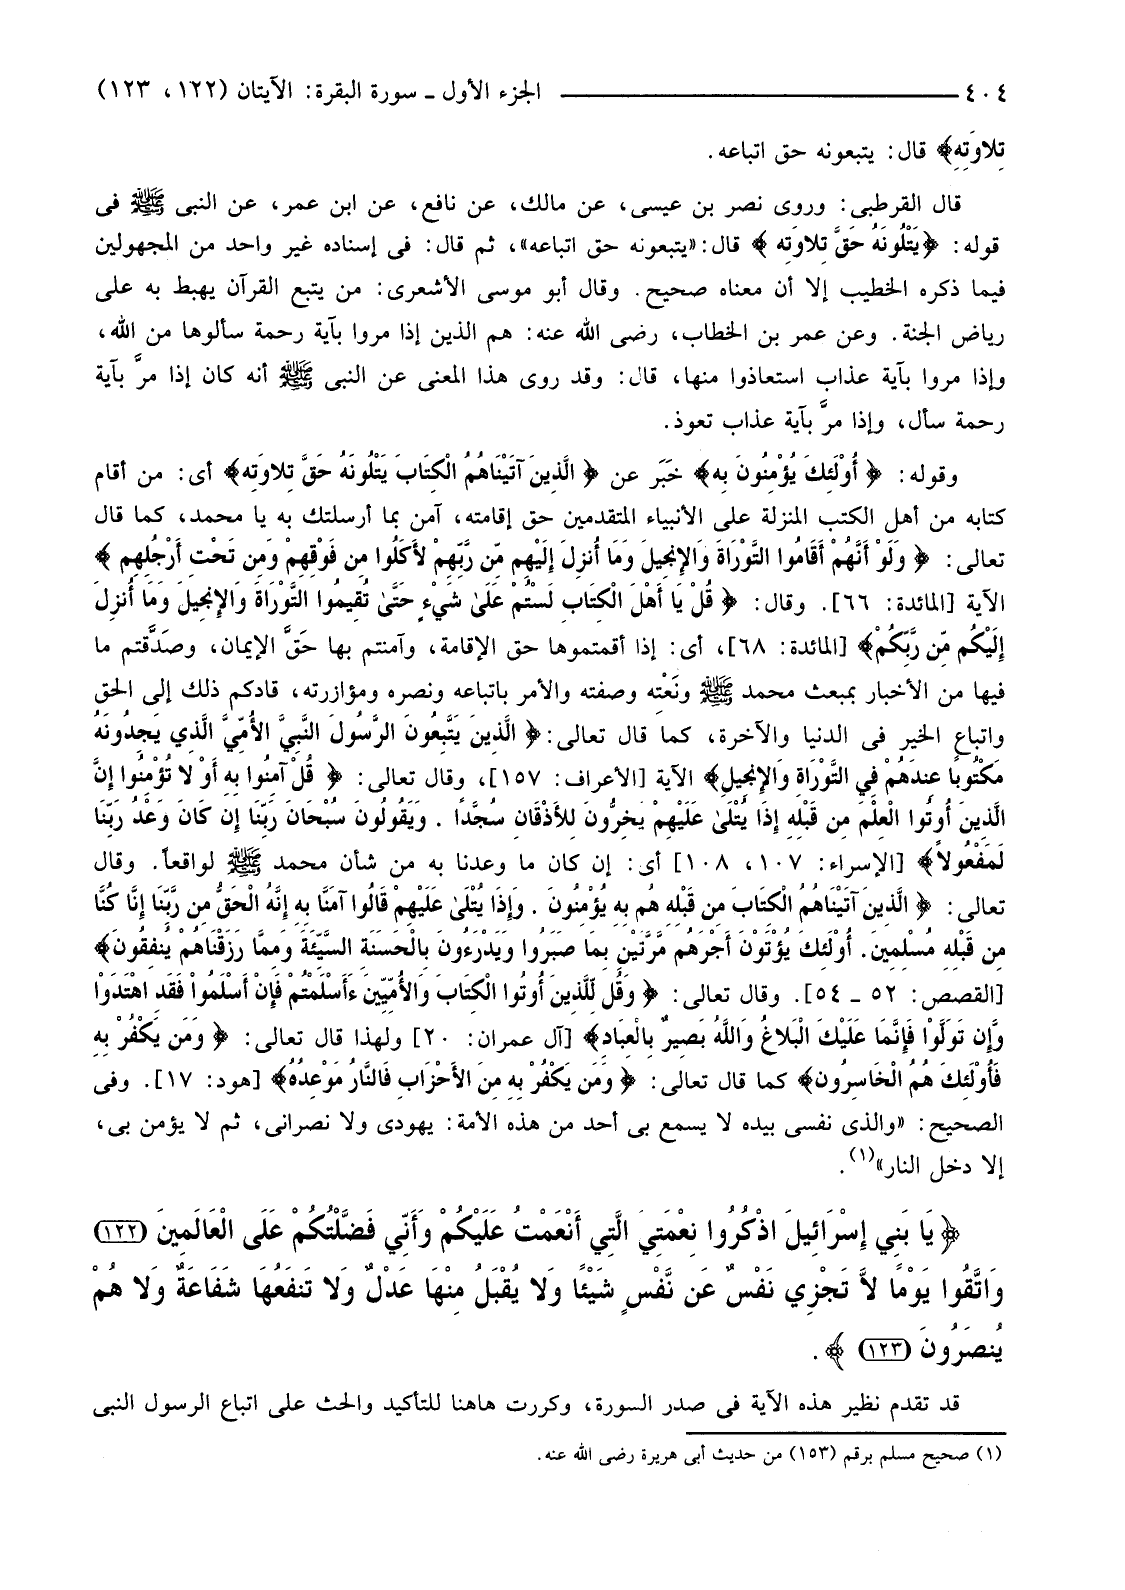 ٤٠٤ ــــــــــــ الجزء الأول ـ سورة البقرة: الآيتان (١٢٢، ١٢٣)
تِلاوَتِهِ﴾ قال: يتبعونه حق اتباعه.
قال القرطبى: وروى نصر بن عيسى، عن مالك، عن نافع، عن ابن عمر، عن النبى ﷺ فى
قوله: ﴿يَتْلُونَهُ حَقَّ تِلاوَتِهِ ﴾ قال: «يتبعونه حق اتباعه»، ثم قال: فى إسناده غير واحد من المجهولين
فيما ذكره الخطيب إلا أن معناه صحيح. وقال أبو موسى الأشعرى: من يتبع القرآن يهبط به على
رياض الجنة. وعن عمر بن الخطاب، رضى الله عنه: هم الذين إذا مروا بآية رحمة سألوها من الله،
وإذا مروا بآية عذاب استعاذوا منها، قال: وقد روى هذا المعنى عن النبى ﷺ أنه كان إذا مرَّ بآية
رحمة سأل، وإذا مرَّ بآية عذاب تعوذ.
وقوله: ﴿ أُوْلَئِكَ يُؤْمِنُونَ بِهِ﴾ خَبَر عن ﴿ الَّذِينَ آتَيْنَاهُمُ الْكِتَابَ يَتْلُونَهُ حَقَّ تِلاوَتِهِ﴾ أى: من أقام
كتابه من أهل الكتب المنزلة على الأنبياء المتقدمين حق إقامته، آمن بما أرسلتك به يا محمد، كما قال
تعالى: ﴿ وَلَوْ أَنَّهُمْ أَقَامُوا التَّوْرَاةَ وَالإِنجِيلَ وَمَا أُنزِلَ إِلَيْهِم مِّن رَّبِّهِمْ لأَكَلُوا مِن فَوْقِهِمْ وَمِن تَحْتِ أَرْجُلِهِم ﴾
الآية [المائدة: ٦٦]. وقال: ﴿ قُلْ يَا أَهْلَ الْكِتَابِ لَسْتُمْ عَلَىٰ شَيْءٍ حَتَّىٰ تُقِيمُوا التَّوْرَاةَ وَالإِنجِيلَ وَمَا أُنزِلَ
إِلَيْكُم مِّن رَّبِّكُمْ﴾ [المائدة: ٦٨]، أى: إذا أقمتموها حق الإقامة، وآمنتم بها حَقَّ الإيمان، وصَدَّقتم ما
فيها من الأخبار بمبعث محمد ﷺ ونَعْتِه وصفته والأمر باتباعه ونصره ومؤازرته، قادكم ذلك إلى الحق
واتباع الخير فى الدنيا والآخرة، كما قال تعالى: ﴿ الَّذِينَ يَتَّبِعُونَ الرَّسُولَ النَّبِيَّ الأُمِّيَّ الَّذِي يَجِدُونَهُ
مَكْتُوبًا عِندَهُمْ فِي التَّوْرَاةِ وَالإِنجِيلِ﴾ الآية [الأعراف: ١٥٧]، وقال تعالى: ﴿ قُلْ آمِنُوا بِهِ أَوْ لا تُؤْمِنُوا إِنَّ
الَّذِينَ أُوتُوا الْعِلْمَ مِن قَبْلِهِ إِذَا يُتْلَىٰ عَلَيْهِمْ يَخِرُّونَ لِلأَذْقَانِ سُجَّدًا . وَيَقُولُونَ سُبْحَانَ رَبِّنَا إِن كَانَ وَعْدُ رَبِّنَا
لَمَفْعُولاً﴾ [الإسراء: ١٠٧، ١٠٨] أى: إن كان ما وعدنا به من شأن محمد ﷺ لواقعاً. وقال
تعالى: ﴿ الَّذِينَ آتَيْنَاهُمُ الْكِتَابَ مِن قَبْلِهِ هُم بِهِ يُؤْمِنُونَ . وَإِذَا يُتْلَىٰ عَلَيْهِمْ قَالُوا آمَنَّا بِهِ إِنَّهُ الْحَقُّ مِن رَّبِّنَا إِنَّا كُنَّا
مِن قَبْلِهِ مُسْلِمِينَ. أُوْلَئِكَ يُؤْتَوْنَ أَجْرَهُم مَّرَّتَيْنِ بِمَا صَبَرُوا وَيَدْرَءُونَ بِالْحَسَنَةِ السَّيِّئَةَ وَمِمَّا رَزَقْنَاهُمْ يُنفِقُونَ﴾
[القصص: ٥٢ ـ ٥٤]. وقال تعالى: ﴿ وَقُل لِّلَّذِينَ أُوتُوا الْكِتَابَ وَالأُمِّيِّينَ ءَأَسْلَمْتُمْ فَإِنْ أَسْلَمُوا فَقَدِ اهْتَدَوْا
وَّإِن تَوَلَّوْا فَإِنَّمَا عَلَيْكَ الْبَلاغُ وَاللَّهُ بَصِيرٌ بِالْعِبَادِ﴾ [آل عمران: ٢٠] ولهذا قال تعالى: ﴿ وَمَن يَكْفُرْ بِهِ
فَأُوْلَئِكَ هُمُ الْخَاسِرُونَ﴾ كما قال تعالى: ﴿ وَمَن يَكْفُرْ بِهِ مِنَ الأَحْزَابِ فَالنَّارُ مَوْعِدُهُ﴾ [هود: ١٧]. وفى
الصحيح: «والذى نفسى بيده لا يسمع بى أحد من هذه الأمة: يهودى ولا نصرانى، ثم لا يؤمن بى،
إلا دخل النار»(١).
﴿ يَا بَنِي إِسْرَائِيلَ اذْكُرُوا نِعْمَتِيَ الَّتِي أَنْعَمْتُ عَلَيْكُمْ وَأَنِّي فَضَّلْتُكُمْ عَلَى الْعَالَمِينَ (١٢٢)
وَاتَّقُوا يَوْمًا لاَّ تَجْزِي نَفْسٌ عَن نَّفْسٍ شَيْئًا وَلا يُقْبَلُ مِنْهَا عَدْلٌ وَلا تَنفَعُهَا شَفَاعَةٌ وَلا هُمْ
يُنصَرُونَ (١٢٣) ﴾.
قد تقدم نظير هذه الآية فى صدر السورة، وكررت هاهنا للتأكيد والحث على اتباع الرسول النبى
(١) صحيح مسلم برقم (١٥٣) من حديث أبى هريرة رضى الله عنه.